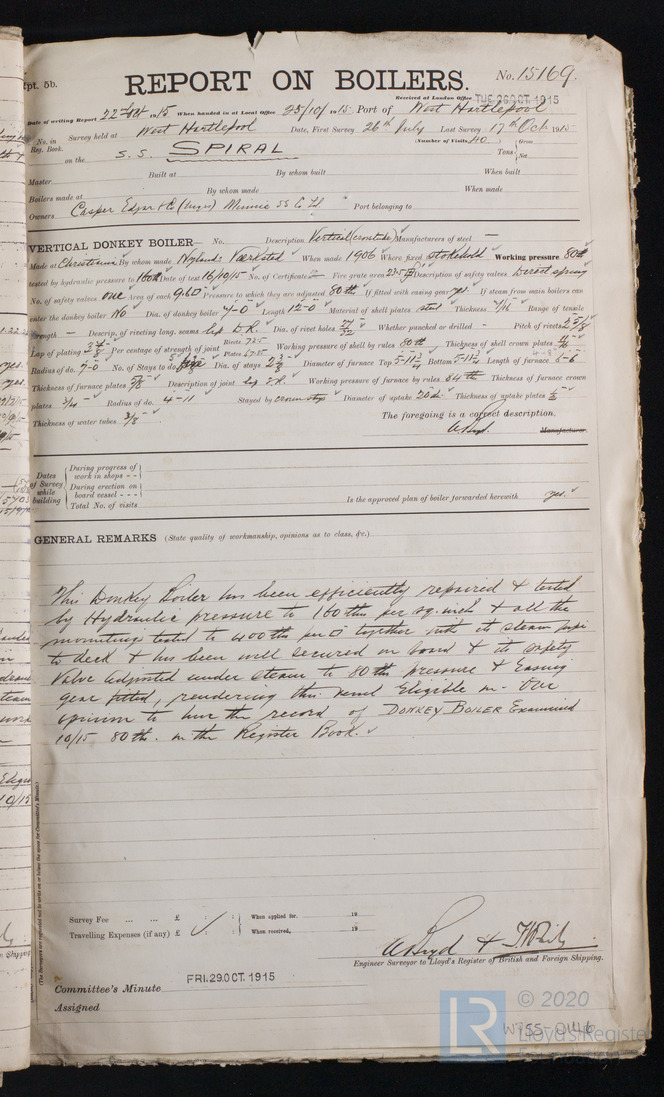 Rpt. 5b.
REPORT ON BOILERS.
No. 15169.
Received at London Office TUE. 26 OCT. 1915
Date of writing Report 22nd Oct 1915 When handed in at Local Office 25/10/1915 Port of West Hartlepool
No. in Reg. Book. Survey held at West Hartlepool Date, First Survey 26th July Last Survey 17th Oct 1915
(Number of Visits 40)
on the S.S. SPIRAL Tons Gross Net
Master Built at By whom built When built
Boilers made at By whom made When made
Owners Casper Edgar & Co Minnie SS Co Ltd Port belonging to
VERTICAL DONKEY BOILER— No. Description Vertical (crosstube) Manufacturers of steel —
Made at Christiania By whom made Nylands Værksted When made 1906 Where fixed Stokehold Working pressure 80 lb
tested by hydraulic pressure to 160 lb Date of test 16/10/15 No. of Certificate — Fire grate area 23.5 Description of safety valves Direct spring
No. of safety valves one Area of each 9.6 Pressure to which they are adjusted 80 lb If fitted with easing gear yes. If steam from main boilers can
enter the donkey boiler No Dia. of donkey boiler 7-0 Length 12-0 Material of shell plates steel Thickness 7/16 Range of tensile
strength — Descrip. of riveting long. seams lap D.R. Dia. of rivet holes 27/32 Whether punched or drilled - Pitch of rivets 2 5/8
Lap of plating Per centage of strength of joint Rivets 72.5 Plates 67.85 Working pressure of shell by rules 80 lb Thickness of shell crown plates
Radius of do. 7-0 No. of Stays to do. five Dia. of stays Diameter of furnace Top 5-11 Bottom 5-11 Length of furnace
Thickness of furnace plates Description of joint lap S.R. Working pressure of furnace by rules 84 lb Thickness of furnace crown
plates 3/4 Radius of do. 4-11 Stayed by crown stays Diameter of uptake Thickness of uptake plates
Thickness of water tubes 3/8
The foregoing is a correct description.
Manufacturer.
Dates of Survey while building
During progress of work in shops - -
During erection on board vessel - - -
Total No. of visits
Is the approved plan of boiler forwarded herewith yes.
GENERAL REMARKS (State quality of workmanship, opinions as to class, &c.)
This Donkey Boiler has been efficiently repaired & tested
by Hydraulic pressure to 160 lbs per sq. inch & all the
mountings tested to 400 lbs per □ together with its steam pipe
to deck & has been well secured on board & its safety
Valve adjusted under steam to 80 lbs pressure & Easing
gear fitted, rendering this vessel Eligible in our
opinion to have the record of DONKEY BOILER Examined
10/15 80 lb. in the Register Book.
Survey Fee ... ... £ : : When applied for, 19
Travelling Expenses (if any) £ : : When received, 19
Engineer Surveyor to Lloyd's Register of British and Foreign Shipping.
Committee's Minute FRI. 29 OCT. 1915
Assigned
LR © 2020
Lloyd's Register
Foundation
W755-0146